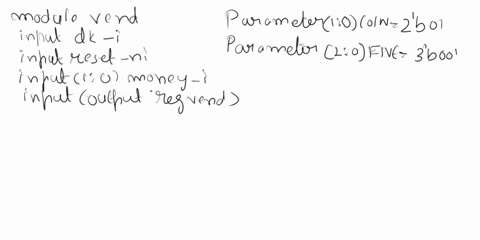 module vend
input clk-i
input reset-ni
input (1:0) money-i
input (output reg vend)
Parameter (1:0) COIN = 2'b01
Parameter (2:0) FIVE = 3'b001